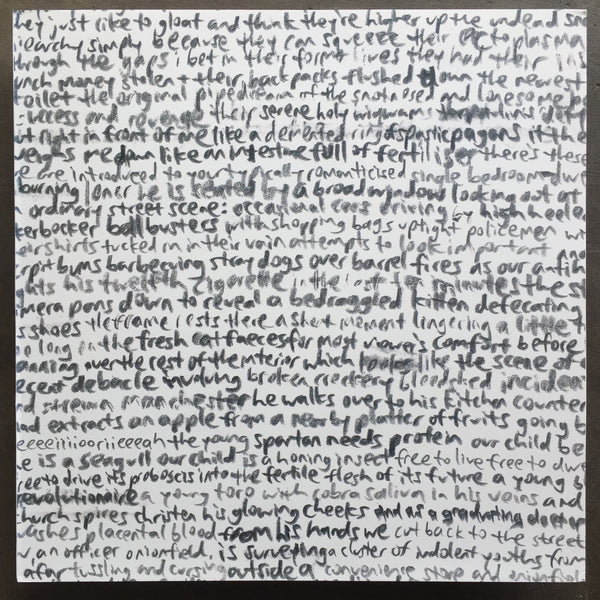 hey just like to gloat and think they're higher up the undead
hierarchy simply because they can squeeze their ectoplasm
through the gaps i bet in their former lives they had their
lunch money stolen + their backpacks flushed down the nearest
toilet the original pipedream of the snotnosed and lonesome
success and revenge their serene holy wigwams
right in front of me like a demented ring of spastic pagans it the
weighs me down like an intestine full of fertiliser there's these
we are introduced to your typically romanticised single bedroom
burning loner he is seated by a broad window looking out at
ordinary street scene: occasional cars driving by high heeled
kerbocker ball busters with shopping bags uptight policemen
their shirts tucked in in their vain attempts to look important
pit bums barbecuing stray dogs over barrel fires as our antih
his twelfth cigarette in the last ten minutes the
camera pans down to reveal a bedraggled kitten defecating
shoes the frame rests there a short moment lingering a little
long on the fresh cat faeces for most viewer's comfort before
panning over the rest of the interior which looks like the scene of
recent debacle involving broken crockery bloodshed
stream manchester he walks over to his kitchen counter
and extracts an apple from a nearby platter of fruits going
eeeeeiiiiooriieeeah the young spartan needs protein our child
is a seagull our child is a honing insect free to live free to
free to drive its proboscis into the fertile flesh of its future a young
revolutionaire a young toro with cobra saliva in his veins and
church spires christen his glowing cheeks and as a graduating doctor
washes placental blood from his hands we cut back to the street
an officer onionfield, is surveying a cluster of indolent youths from
afar tussling and cursing outside a convenience store and onionfield